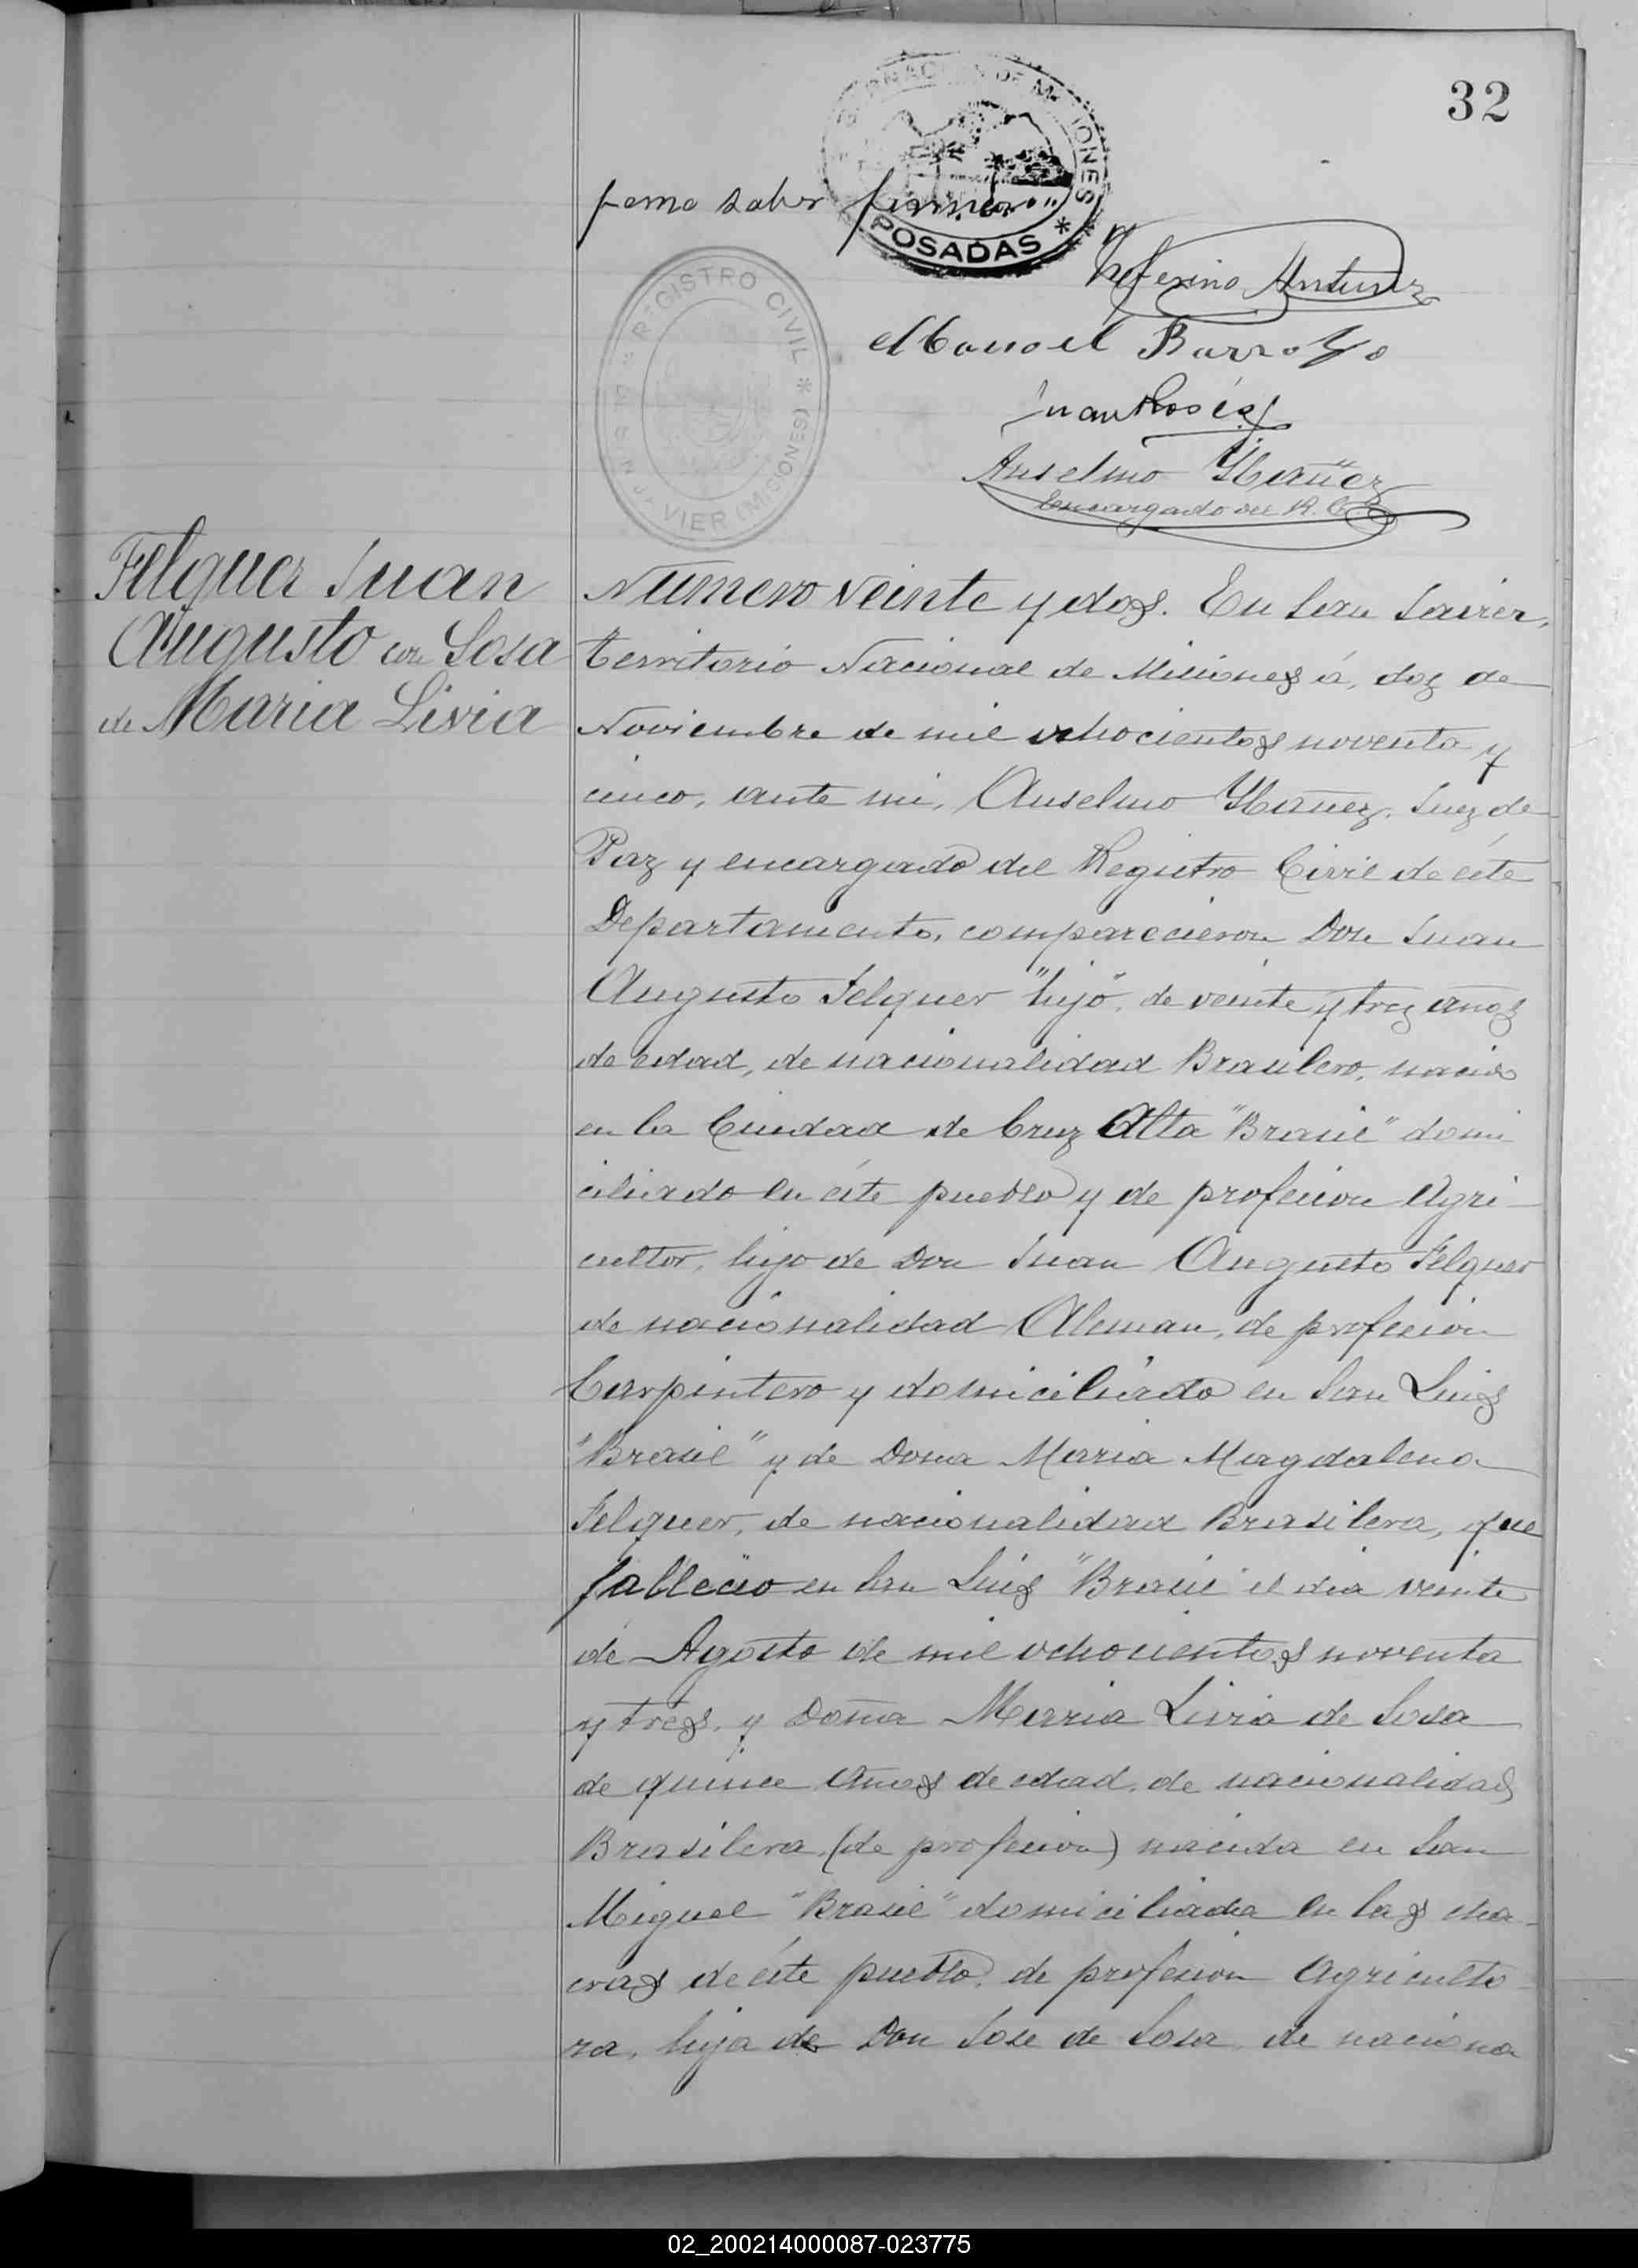 32
GOBERNACION DE MISIONES
POSADAS
por no saber firmar."
Zeferino Antunez
Manoel Barrozo
Juan Rosés
Anselmo Ybañez
Encargado del R. C.
REGISTRO CIVIL
VIER (MISIONES)
Felquer Juan
Augusto con Sosa
de Maria Livia
Numero veinte y dos. En San Javier,
Territorio Nacional de Misiones á, dos de
Noviembre de mil ochocientos noventa y
cinco, ante mi, Anselmo Ybañez, Juez de
Paz y encargado del Registro Civil de éste
Departamento, comparecieron Don Juan
Augusto Felquer "hijo", de veinte y tres años
de edad, de nacionalidad Brasilero, nacido
en la Ciudad de Cruz Alta "Brasil" domi
ciliado en éste pueblo y de profesion Agri-
cultor, hijo de Don Juan Augusto Felquer
de nacionalidad Aleman, de profesion
Carpintero y domiciliado en San Luis
"Brasil" y de Doña Maria Magdalena
Felquer, de nacionalidad Brasilera, que
fallecio en San Luis "Brasil" el dia veinte
de Agosto de mil ochocientos noventa
y tres, y Doña Maria Livia de Sosa
de quince años de edad, de nacionalidad
Brasilera, (de profesion) nacida en San
Miguel "Brasil" domiciliada en las cha-
cras de éste pueblo, de profesion Agriculto
ra, hija de Don Jose de Sosa, de naciona
02_200214000087-023775